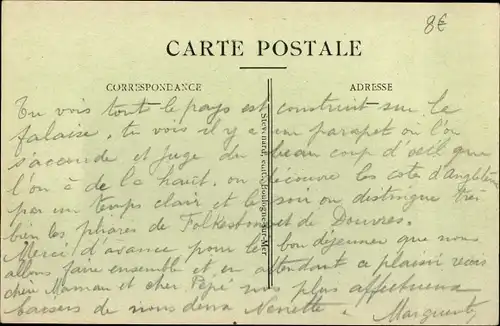 8€
CARTE POSTALE
CORRESPONDANCE
ADRESSE
Tu vois tout le pays est construit sur le
falaise, tu vois il y a un parapet où l'on
s'accoude et juge du beau coup d'œil que
l'on a de là haut, on découvre les cotes d'Angleterre
par un temps clair et le soir on distingue très
bien les phares de Folkestone et de Douvres.
Merci d'avance pour le bon déjeuner que nous
allons faire ensemble et en attendant ce plaisir reçois
chère Maman et cher Pépé nos plus affectueux
baisers de nous deux Nenette. Marguerite
Stevenard, édit. Boulogne-sur-Mer